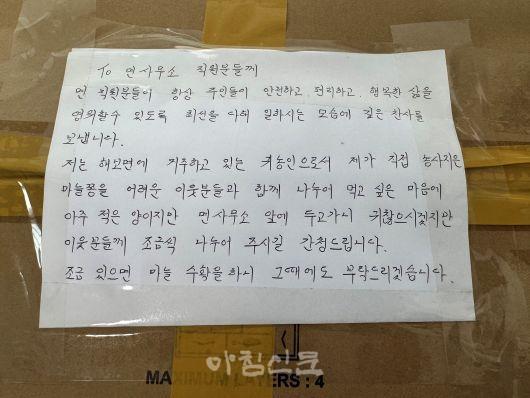 To 면사무소 직원분들께
면 직원분들이 항상 주민들이 안전하고, 편리하고, 행복한 삶을
영위할수 있도록 최선을 다해 일하시는 모습에 깊은 찬사를
보냅니다.
저는 해보면에 거주하고 있는 농인으로서 제가 직접 농사지은
마늘쫑을 어려운 이웃분들과 함께 나누어 먹고 싶은 마음에
아주 적은 양이지만 면사무소 앞에 두고가니 귀찮으시겠지만
이웃분들께 조금씩 나누어 주시길 간청드립니다.
조금 있으면 마늘 수확을 하니 그때에도 부탁드리겠습니다.
아침신문
MAXIMUM LAYERS : 4